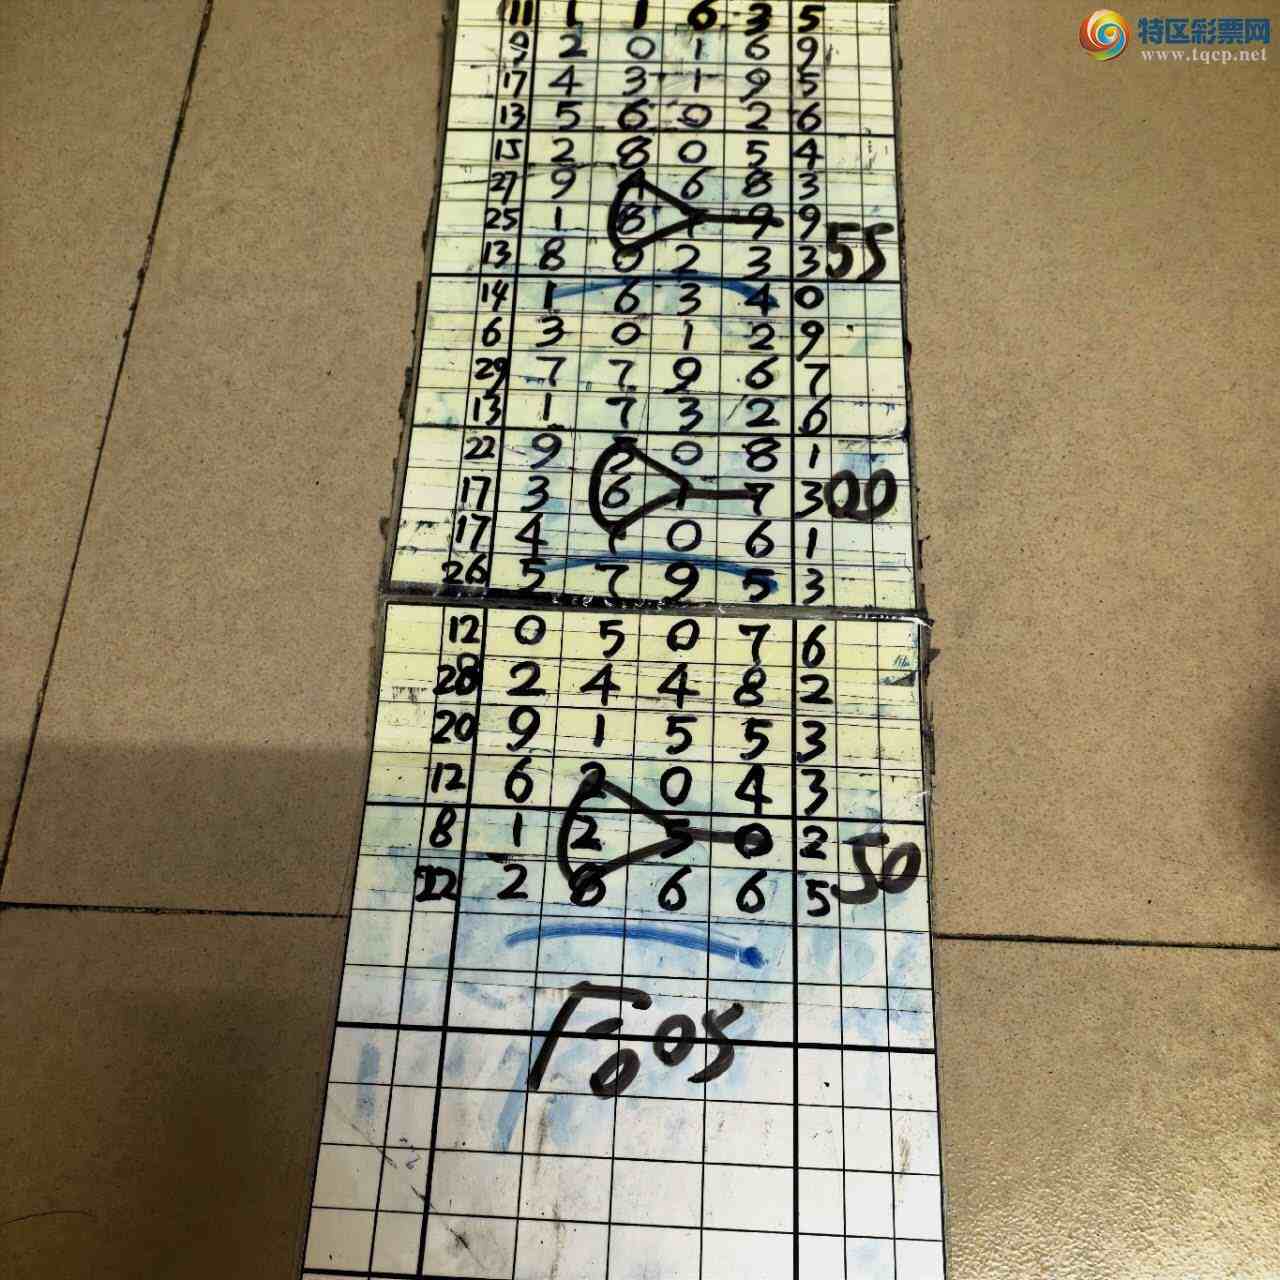 特区彩票网
www.tqcp.net
11 1 1 6 3 5
9 2 0 1 6 9
17 4 3 1 9 5
13 5 6 0 2 6
15 2 8 0 5 4
27 9 4 6 8 3
25 1 8 7 9 9 55
13 8 0 2 3 3
14 1 6 3 4 0
6 3 0 1 2 9
29 7 7 9 6 7
13 1 7 3 2 6
22 9 5 0 8 1
17 3 6 1 7 3 00
17 4 7 0 6 1
26 5 7 9 5 3
12 0 5 0 7 6
2 4 4 8 2
20 9 1 5 5 3
12 6 2 0 4 3
8 1 2 5 0 2 50
22 2 8 6 6 5
05